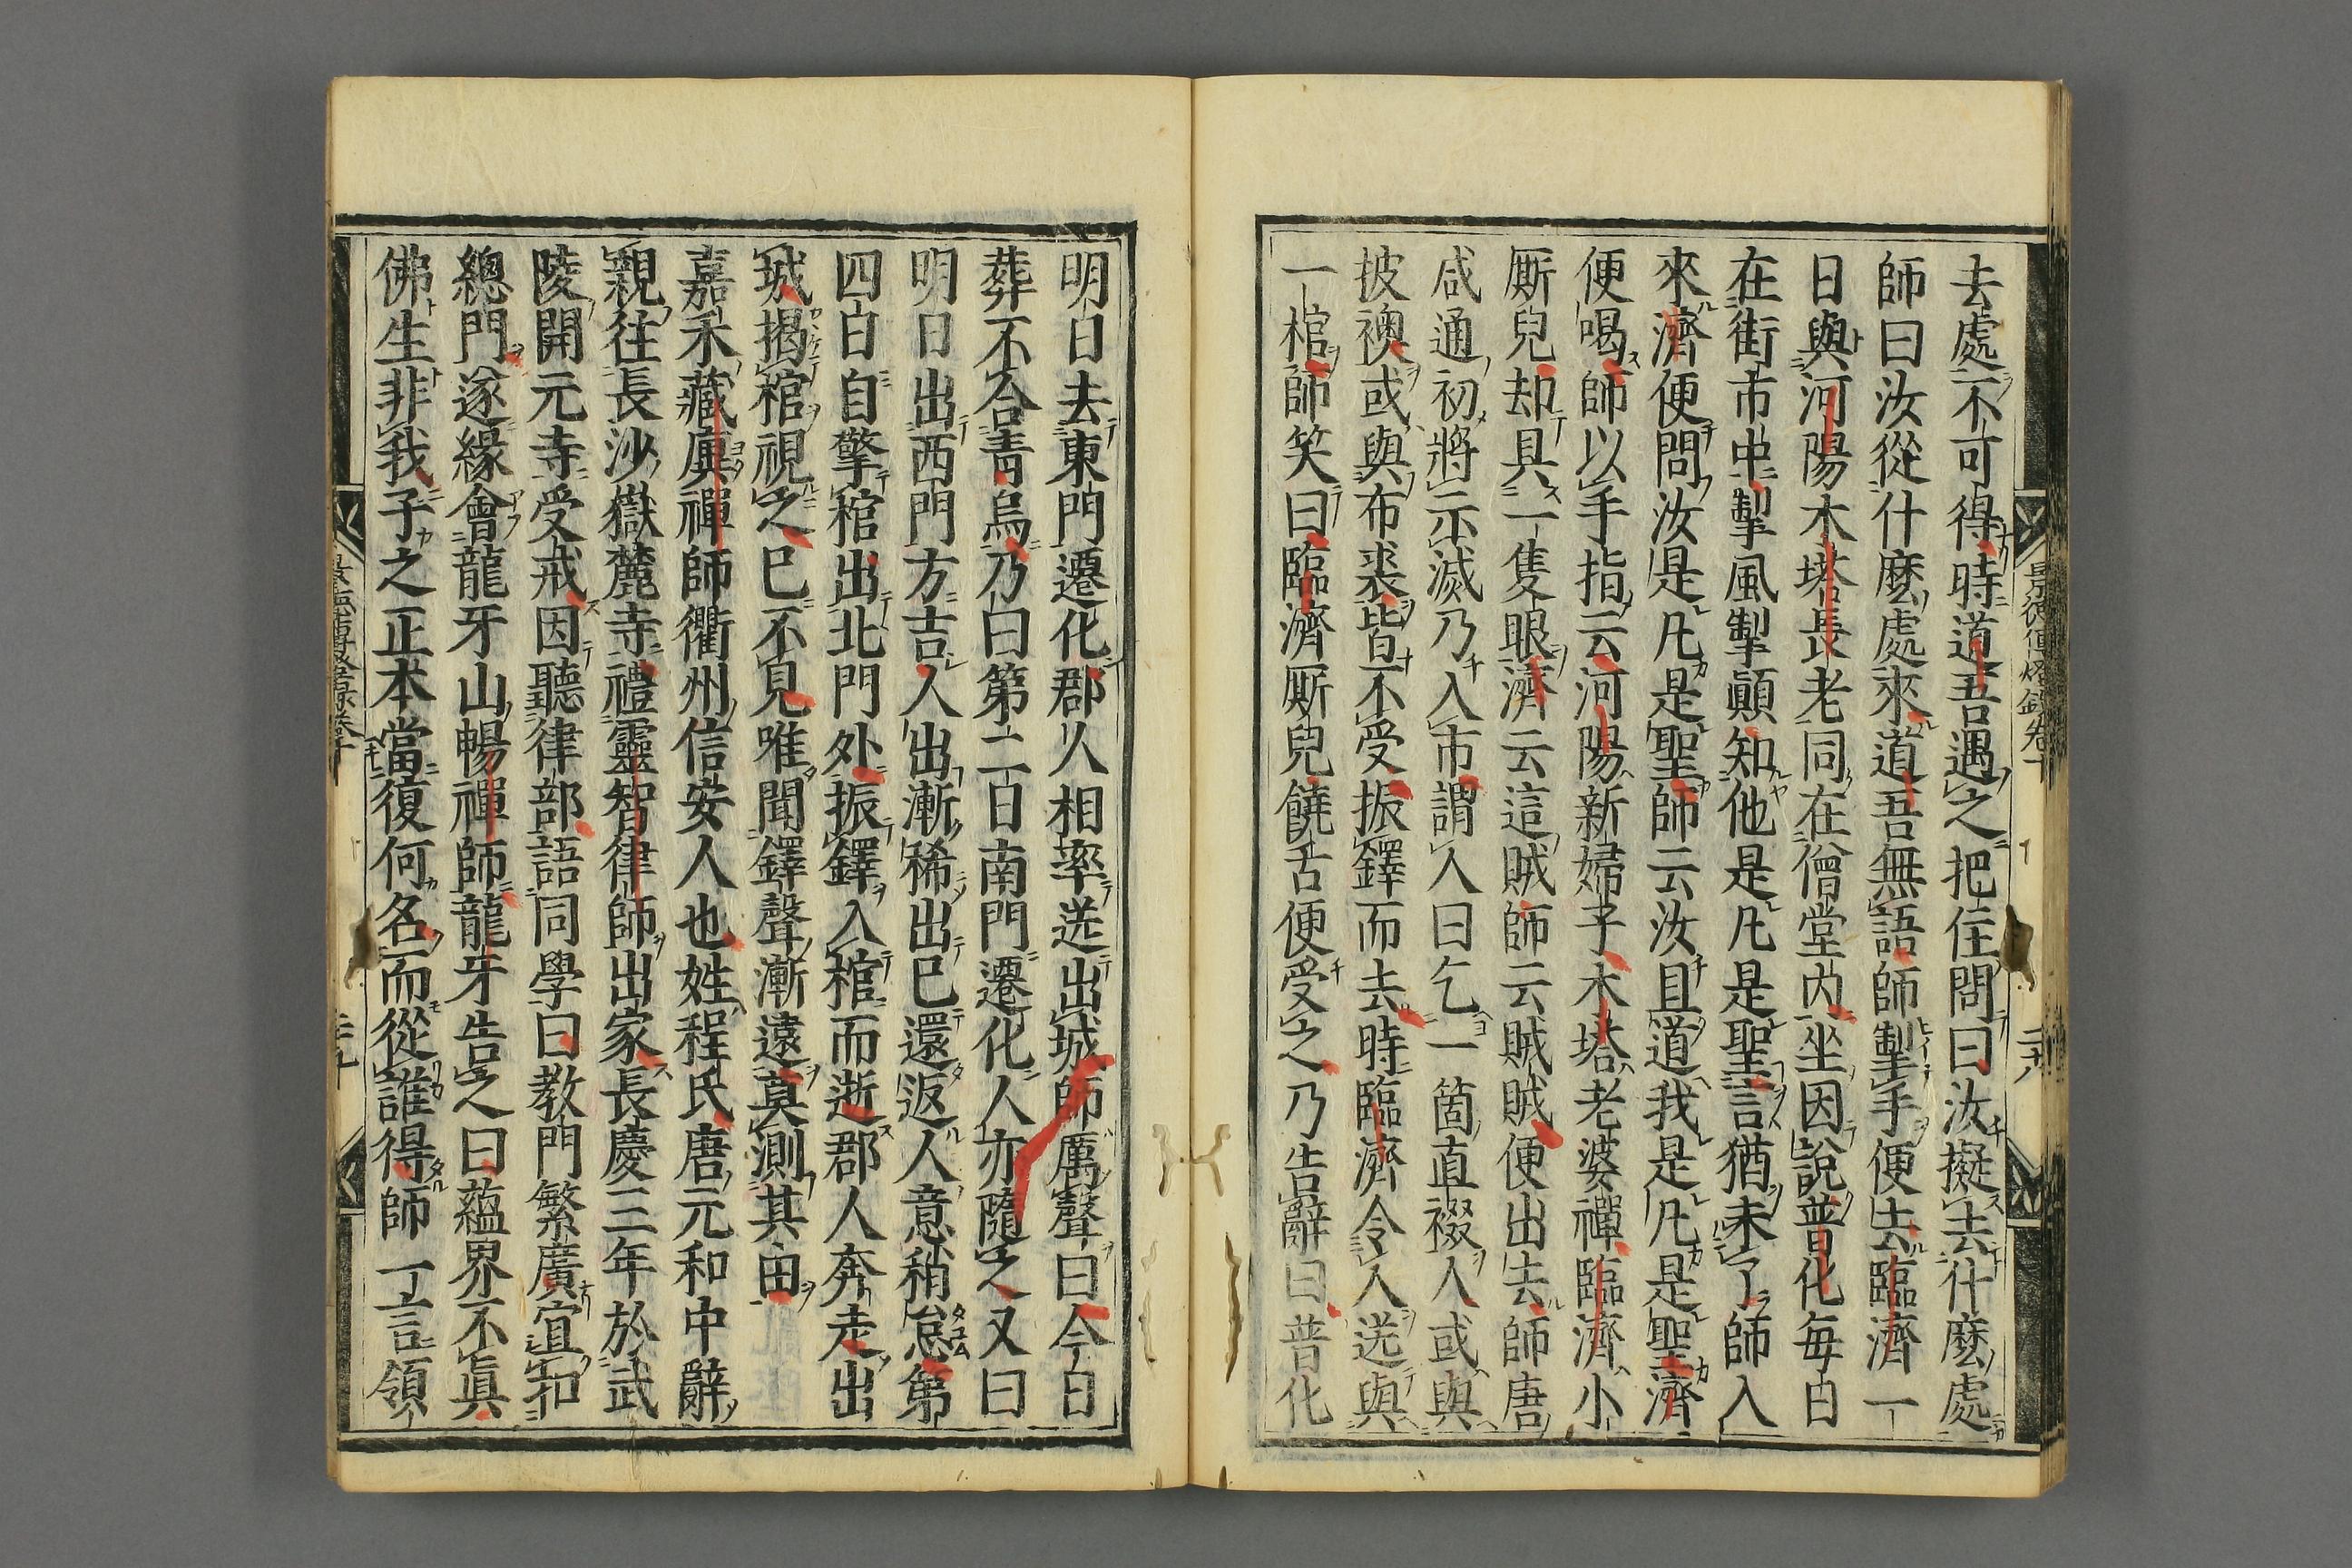 去處不可得時道吾遇之把住問曰汝擬去什麼處
師曰汝從什麼處來道吾無語師掣手便去臨濟一
日與河陽木塔長老同在僧堂內坐因說普化每日
在街市中掣風掣顛知他是凡是聖言猶未了師入
來濟便問汝是凡是聖師云汝且道我是凡是聖濟
便喝師以手指云河陽新婦子木塔老婆禪臨濟小
厮兒却具一隻眼濟云這賊師云賊賊便出去師唐
咸通初將示滅乃入市謂人曰乞一箇直裰人或與
披襖或與布裘皆不受振鐸而去時臨濟令人送與
一棺師笑曰臨濟厮兒饒舌便受之乃告辭曰普化
明日去東門遷化郡人相率送出城師厲聲曰今日
葬不合青烏乃曰第二日南門遷化人亦隨之又曰
明日出西門方吉人出漸稀出已還返人意稍怠第
四日自擎棺出北門外振鐸入棺而逝郡人奔走出
城揭棺視之已不見唯聞鐸聲漸遠莫測其由
嘉禾藏廙禪師衢州信安人也姓程氏唐元和中辭
親往長沙嶽麓寺禮靈智律師出家長慶三年於武
陵開元寺受戒因聽律部語同學曰教門繁廣宜扣
總門遂緣會龍牙山暢禪師龍牙告之曰蘊界不真
佛生非我子之正本當復何名而從誰得師一言領
景德傳燈錄卷十